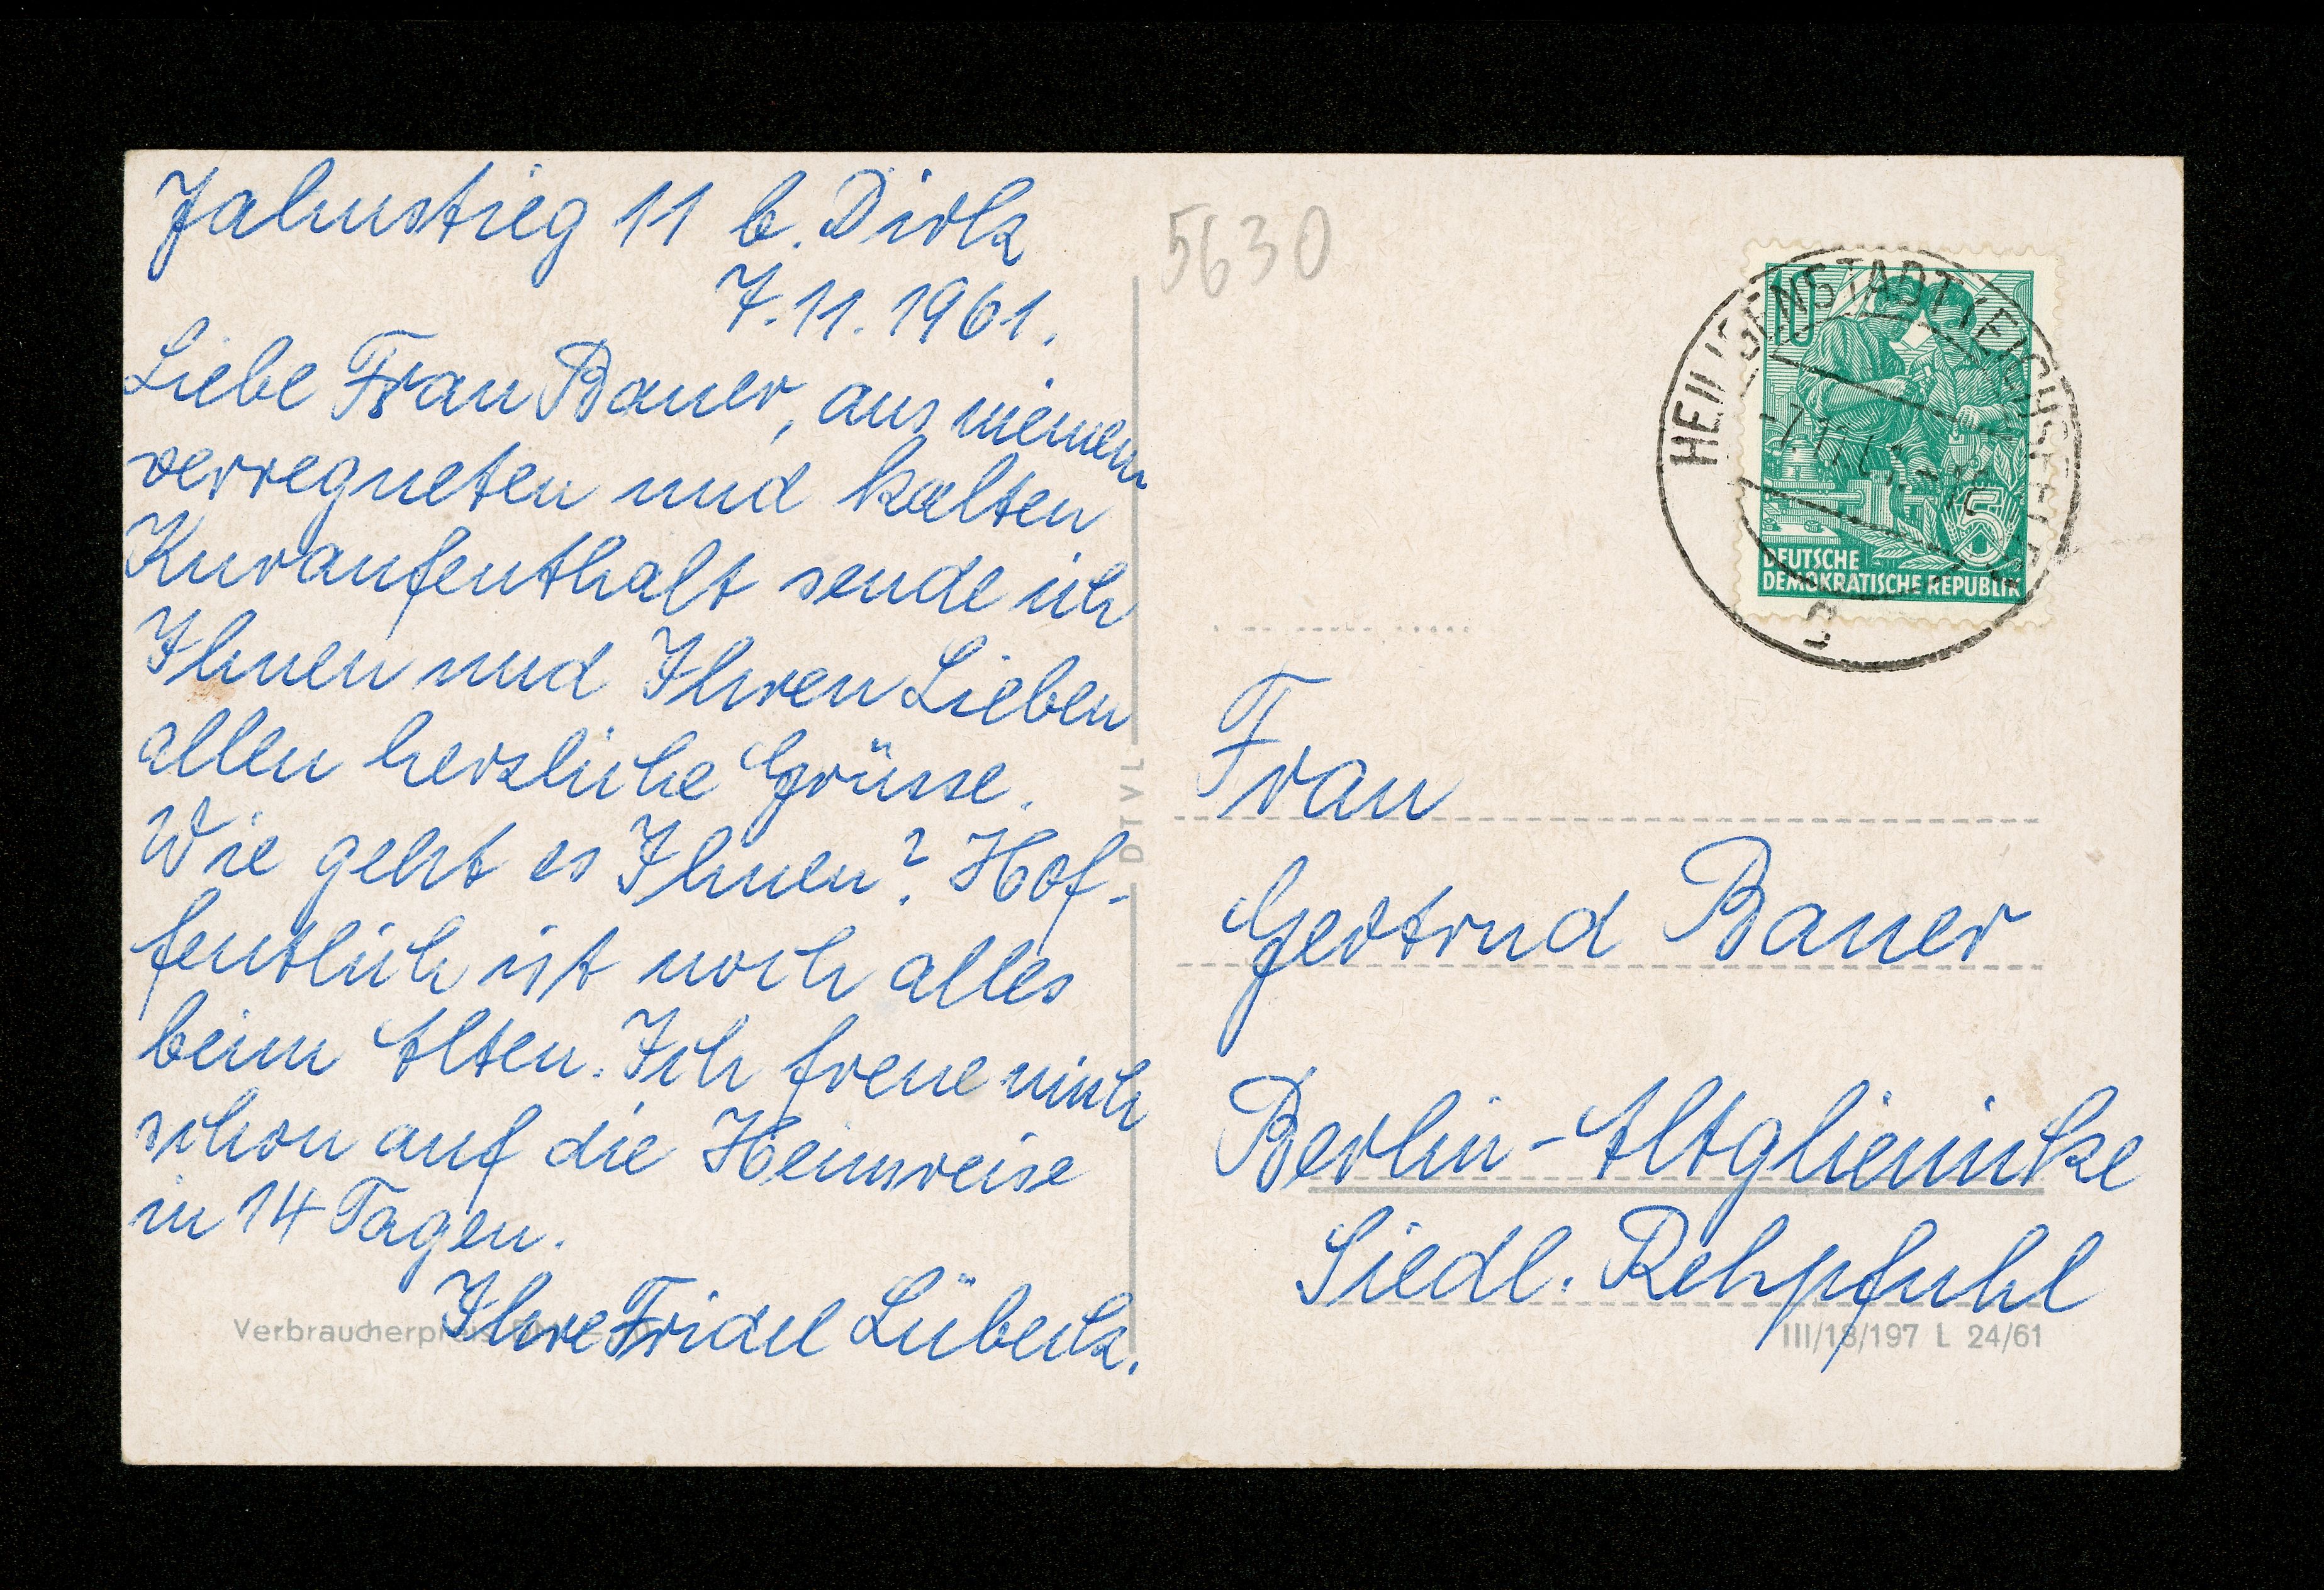 Jahnstieg 11 b. Dirk
7.11.1961.
Liebe Frau Bauer, aus meinem
verregneten und kalten
Kuraufenthalt sende ich
Ihnen und Ihren Lieben
allen herzliche Grüsse.
Wie geht es Ihnen? Hof-
fentlich ist noch alles
beim Alten. Ich freue mich
schon auf die Heimreise
in 14 Tagen.
Ihre Fridel Lübeck.
Verbraucherpreis
DTVL
5630
HEILIGENSTADT (EICHSFELD)
10
5
DEUTSCHE
DEMOKRATISCHE REPUBLIK
Frau
Gertrud Bauer
Berlin-Altglienicke
Siedl. Rehpfuhl
III/18/197 L 24/61